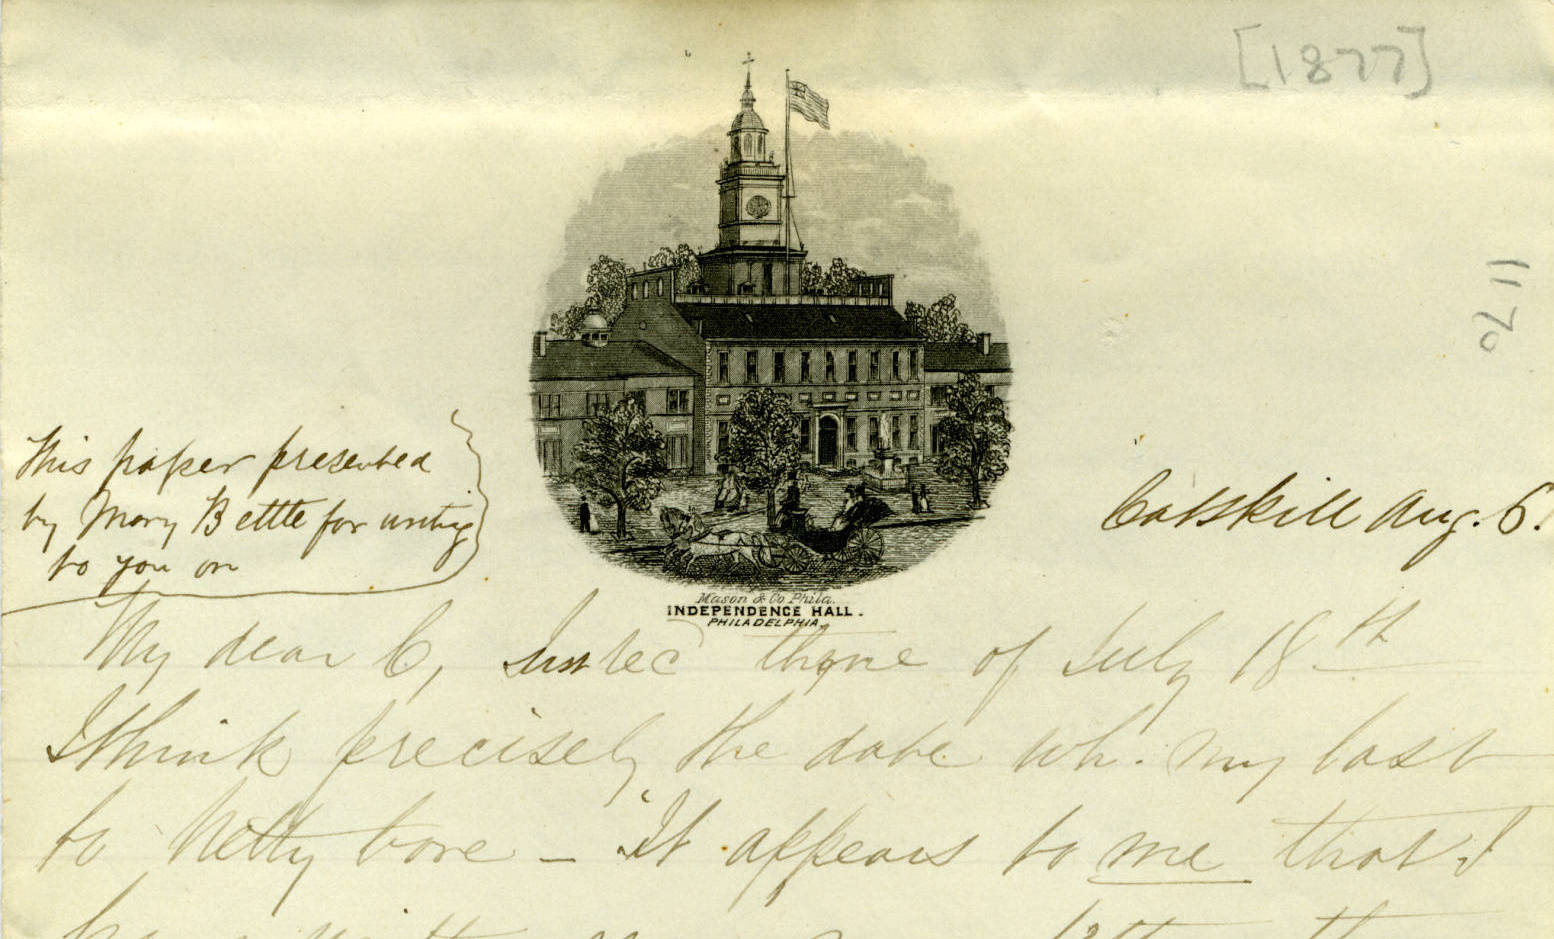 [1877]
1170
This paper presented
by Mary Bettle for writing
to you on
Mason & Co Phila.
INDEPENDENCE HALL.
PHILADELPHIA.
Catskill Aug. 6.
My dear C, Just rec thine of July 18th
I think precisely the date wh. my last
to Netty bore - It appears to me that I